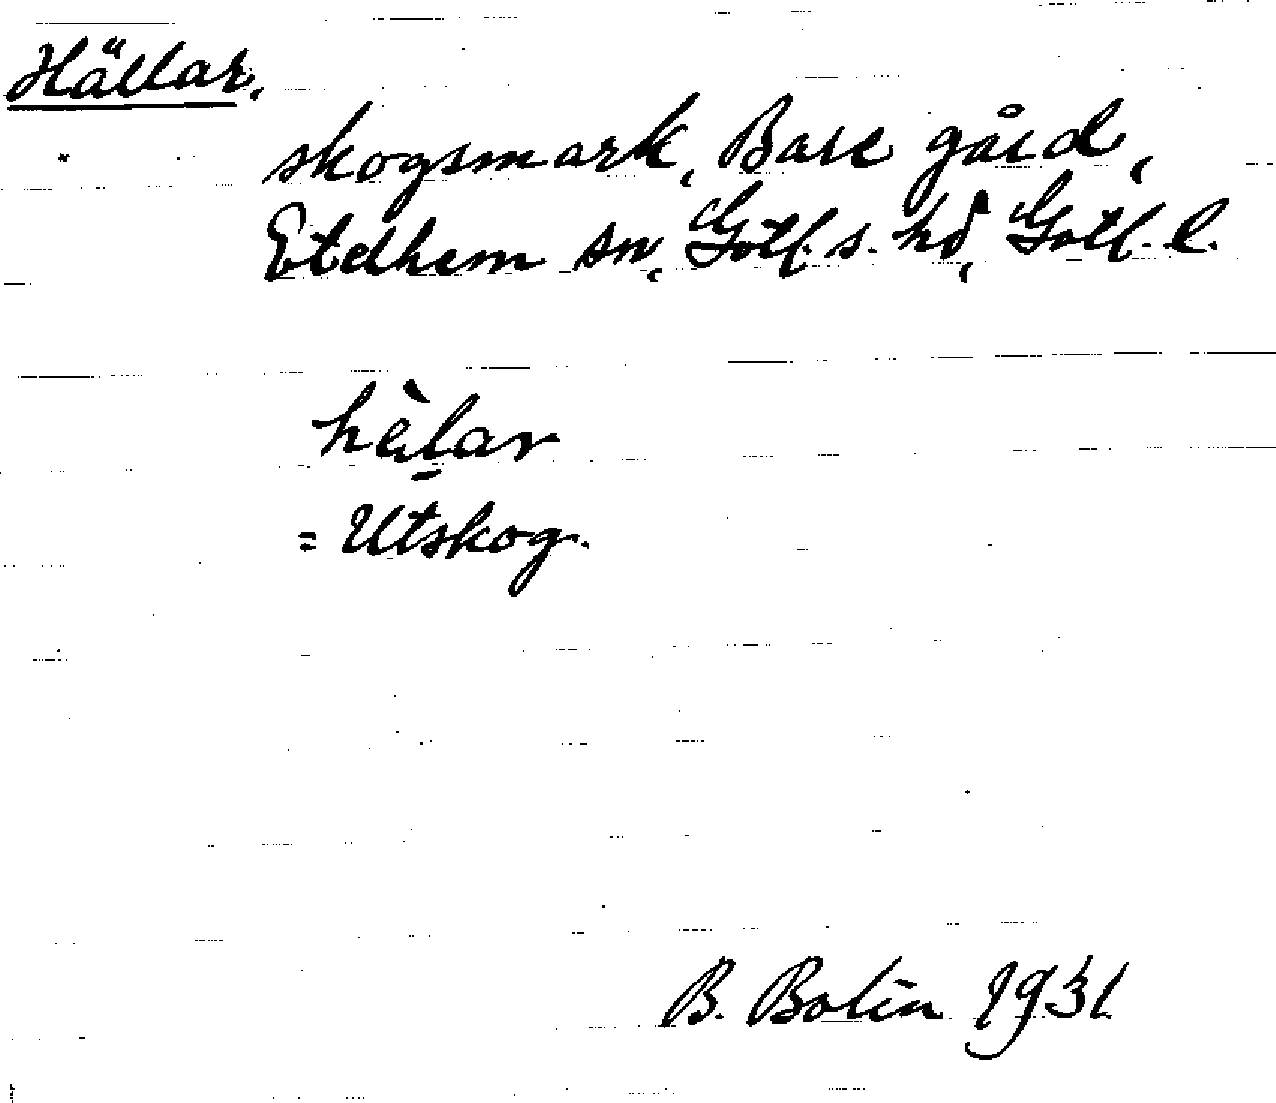 Hällar.
skogsmark, Bare gård,
Etelhem sn, Gotl. s. hd, Gotl. l.
hèl̠ar
= Utskog.
B. Bolin 1931